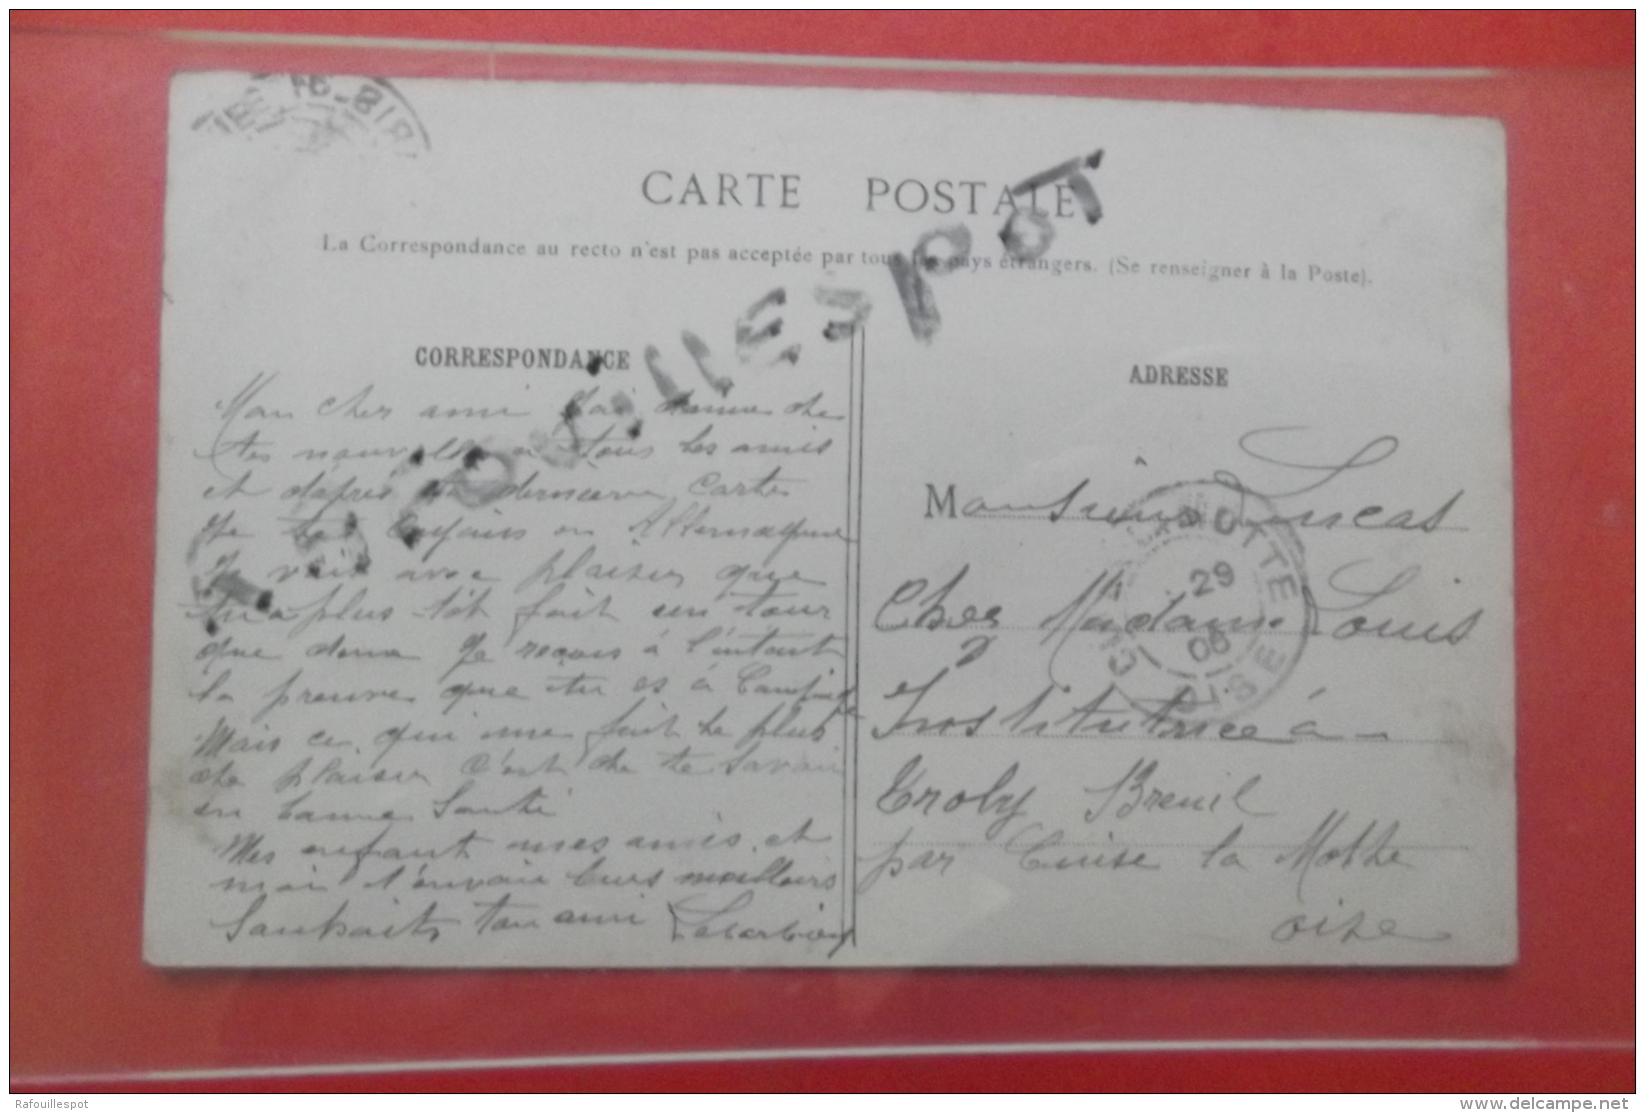 CARTE POSTALE
La Correspondance au recto n'est pas acceptée par tous les pays étrangers. (Se renseigner à la Poste).
CORRESPONDANCE
ADRESSE
Mon cher ami J'ai donne de
tes nouvelles a tous les amis
et dapres ta derniere Carte
Je
Je vois avec plaisir que
tu a plus tôt fait un tour
que donne Je reçois à l'intant
la preuve que tu es à
Mais ce qui me fait le plus
de plaisir c'est de te savoir
en bonne Santé
Mes enfant mes amis et
moi t'envoie leurs meilleurs
Souhaits ton ami
Monsieur Lucas
Chez Madame Louis
Institutrice à
Troly Breuil
par Cuise la Mothe
oise
29
06
OISE
Rafouillespot
Rafouillespot
www.delcampe.net